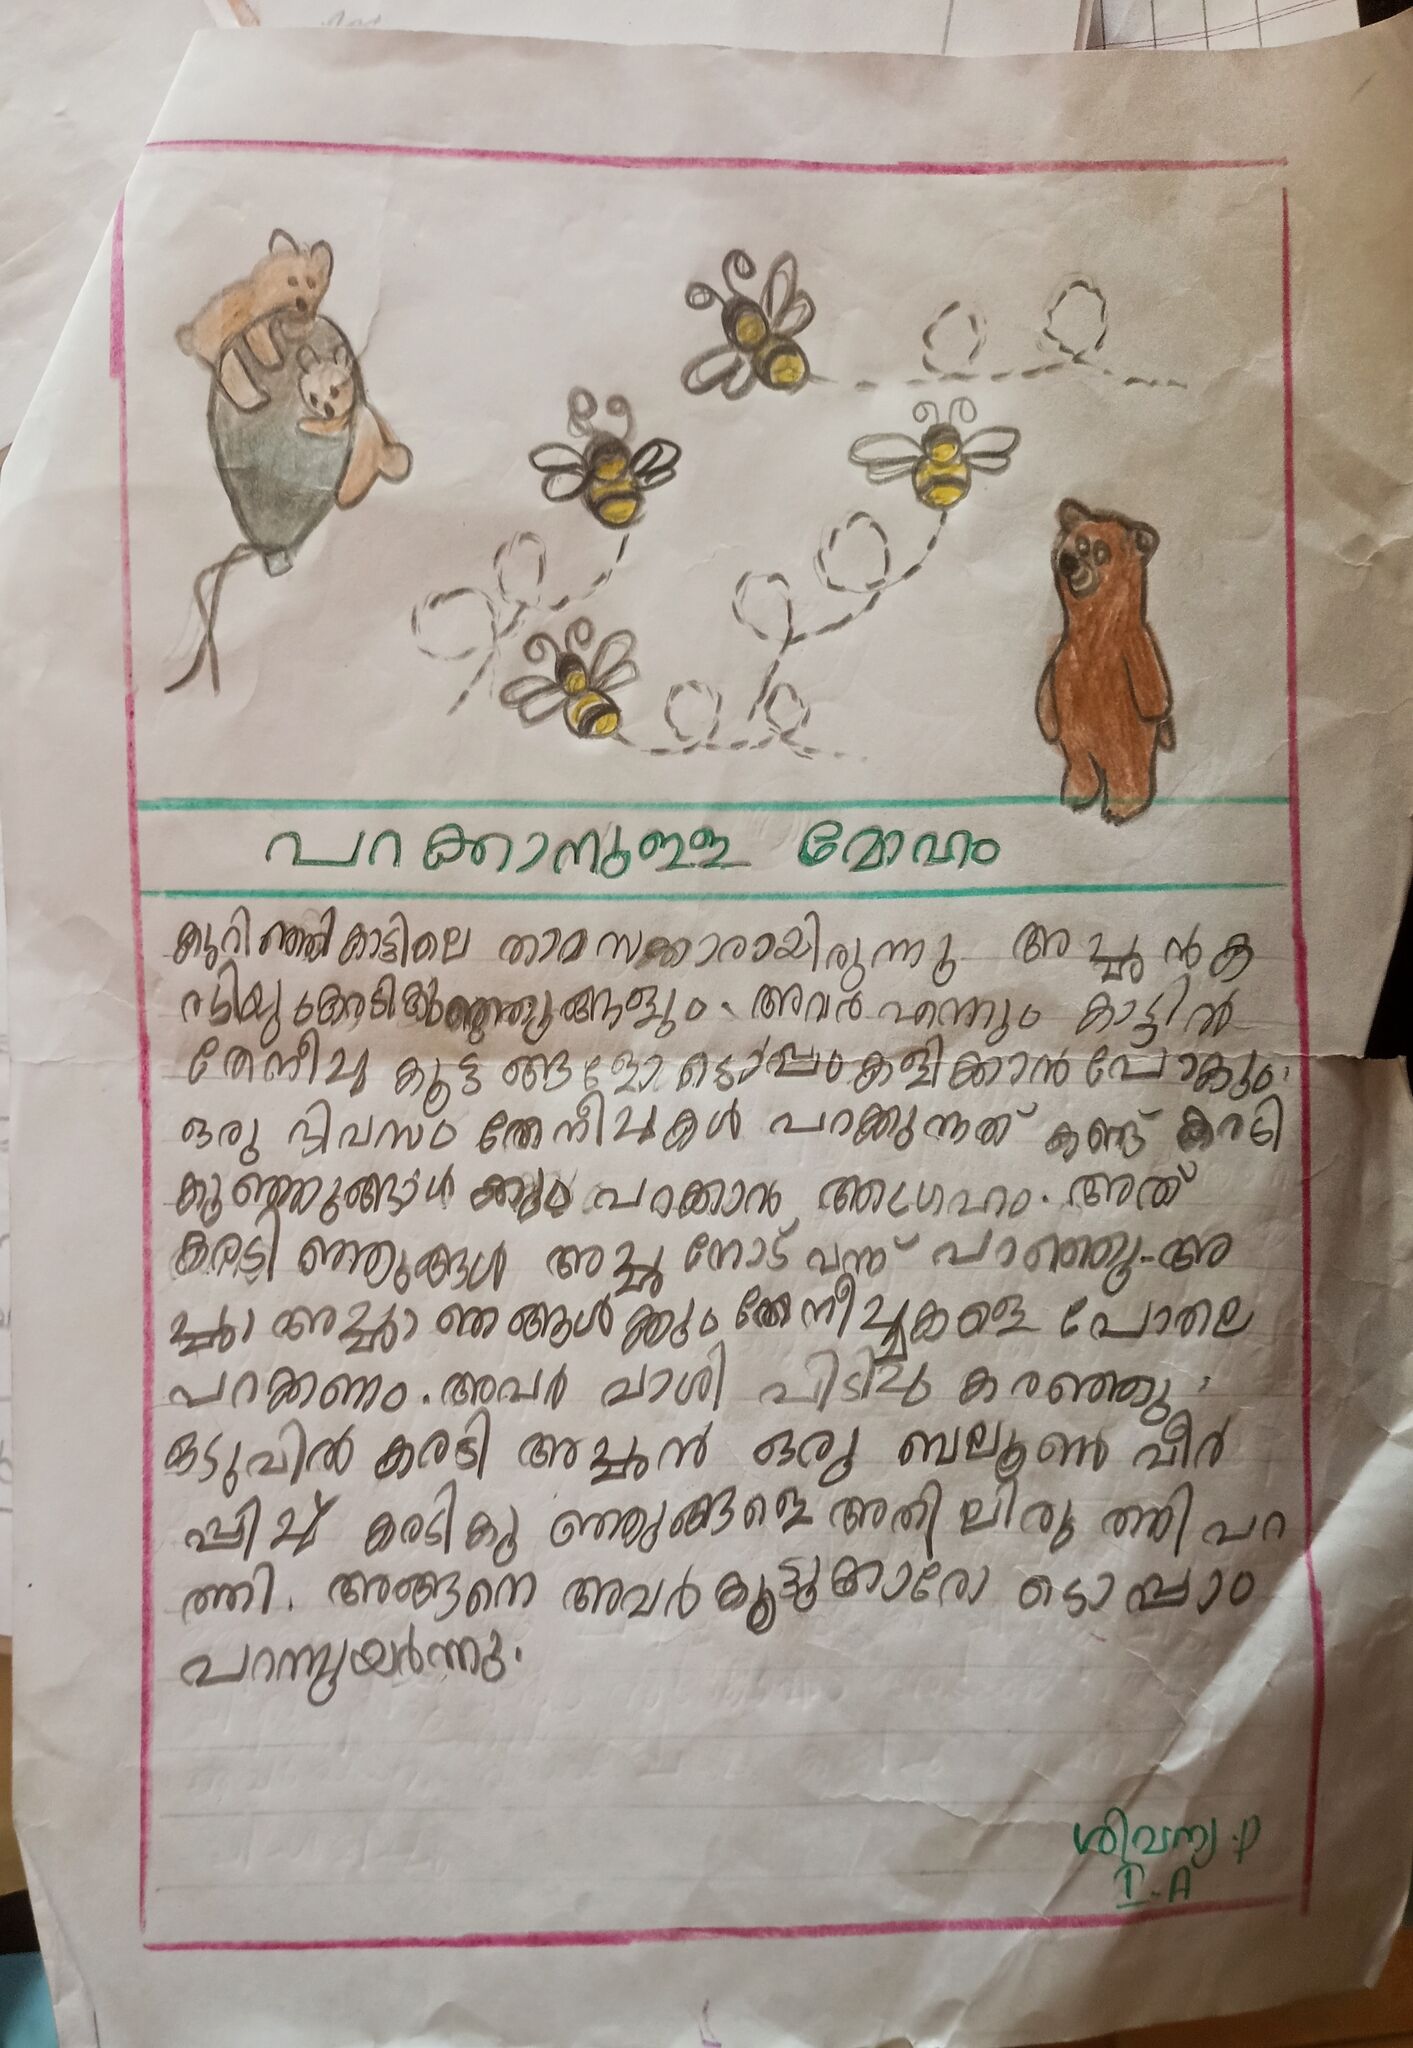 പറക്കാനുള്ള മോഹം
കുറിഞ്ഞികാട്ടിലെ താമസക്കാരായിരുന്നു അച്ചൻക
രടിയുംകരടികുഞ്ഞുങ്ങളും. അവർ എന്നും കാട്ടിൽ
തേനീച്ച കൂട്ടങ്ങളോടൊപ്പംകളിക്കാൻ പോകും.
ഒരു ദിവസം തേനീച്ചകൾ പറക്കുന്നത് കണ്ട് കരടി
കുഞ്ഞുങ്ങൾക്കും പറക്കാൻ ആഗ്രഹം. അത്
കരടി ഞ്ഞുങ്ങൾ അച്ചനോട് വന്ന് പറഞ്ഞു-അ
ച്ചാ അച്ചാ ഞങ്ങൾക്കും തേനീച്ചകളെ പോലെ
പറക്കണം. അവർ വാശി പിടിച്ചു കരഞ്ഞു.
ഒടുവിൽ കരടി അച്ചൻ ഒരു ബലൂൺ വീർ
പ്പിച്ച് കരടികു ഞ്ഞുങ്ങളെ അതിലിരുത്തി പറ
ത്തി. അങ്ങനെ അവർ കൂട്ടുക്കാരോ ടൊപ്പം
പറന്നുയർന്നു.
ശിവന്യ.p
I.A